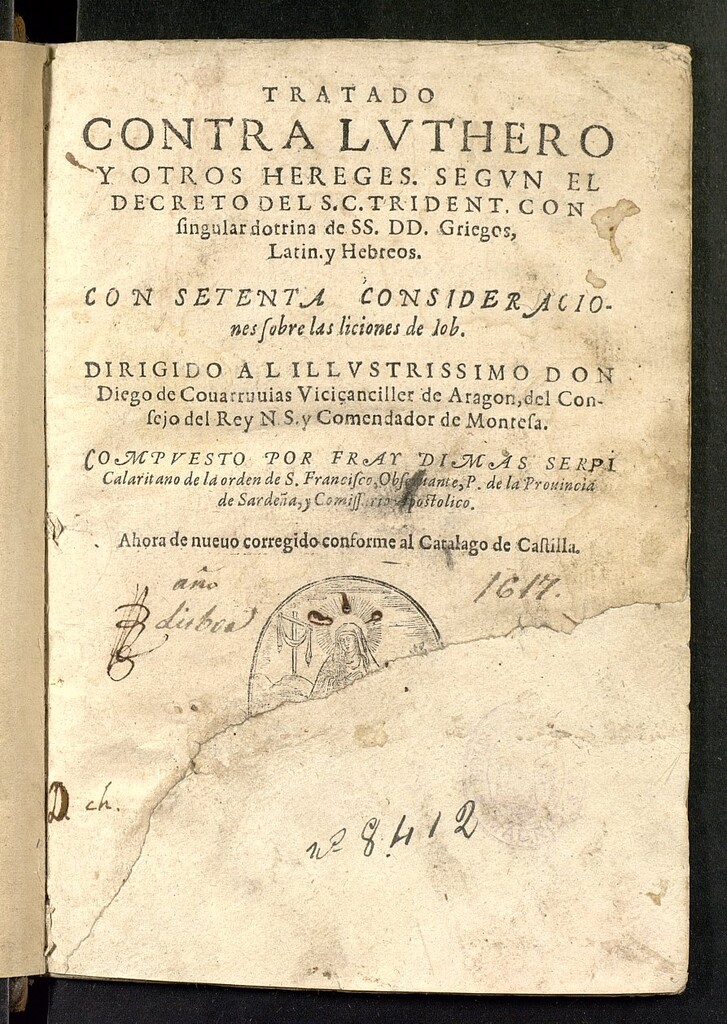 TRATADO
CONTRA LVTHERO
Y OTROS HEREGES. SEGVN EL
DECRETO DEL S.C. TRIDENT. CON
ſingular dotrina de SS. DD. Griegos,
Latin. y Hebreos.
CON SETENTA CONSIDERACIO-
nes ſobre las liciones de Iob.
DIRIGIDO AL ILLVSTRISSIMO DON
Diego de Couarruuias Viciçanciller de Aragon, del Con-
ſejo del Rey N.S. y Comendador de Monteſa.
COMPVESTO POR FRAY DIMAS SERPI
Calaritano de la orden de S. Franciſco, Obſeruante, P. de la Prouincia
de Sardeña, y Comiſſario Apoſtolico.
Ahora de nueuo corregido conforme al Catalago de Caſtilla.
año 1617.
disboa
D. ch.
nº 8.412